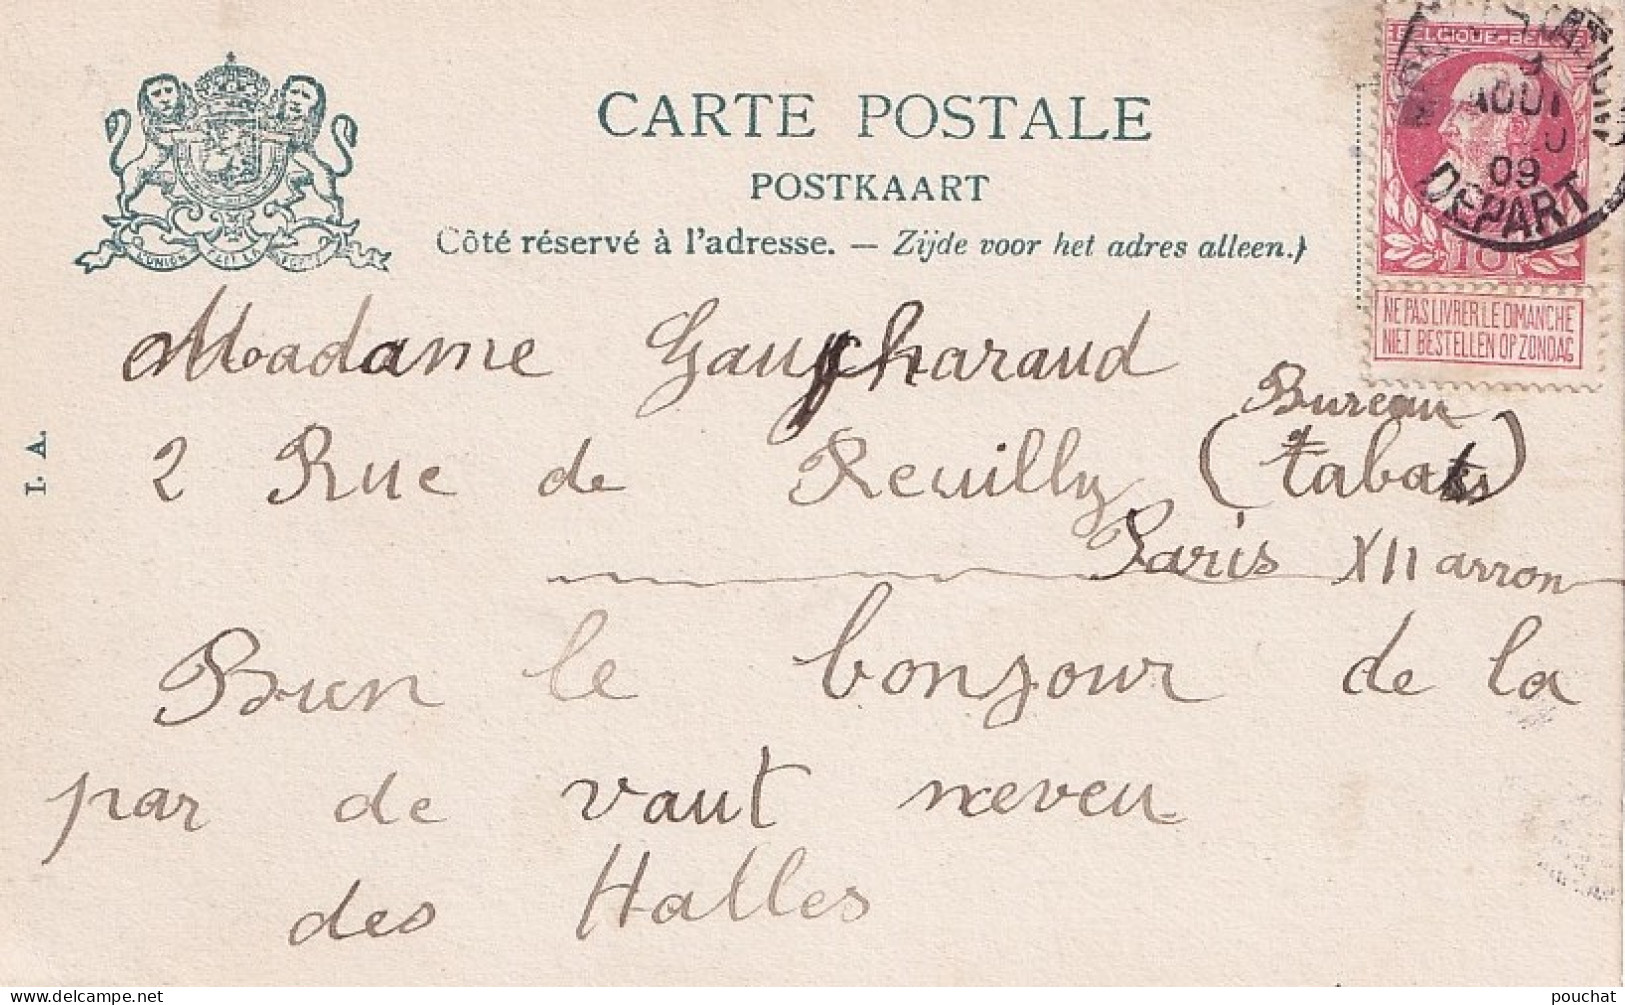 CARTE POSTALE
POSTKAART
Côté réservé à l'adresse. — Zijde voor het adres alleen.)
BELGIQUE-BELGIË
3
AOUT
09
DEPART
10
NE PAS LIVRER LE DIMANCHE
NIET BESTELLEN OP ZONDAG
L'UNION FAIT LA FORCE
I. A.
Madame Gaucharaud
2 Rue de Reuilly (Bureau
tabats)
Paris XII arron
Bien le bonjour de la
par de vaut neveu
des Halles
pouchat